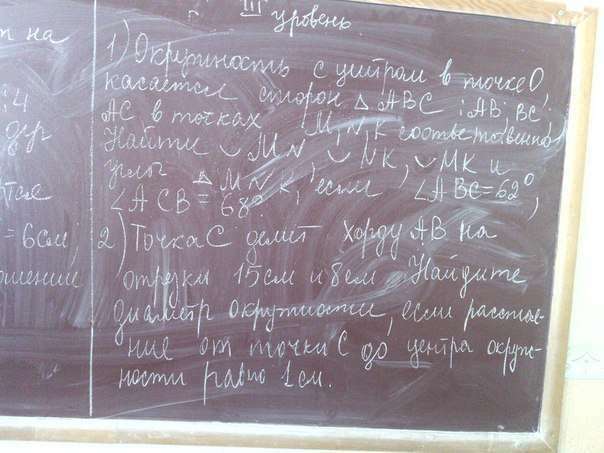 т на
:4
дуг
ятся
= 6 см,
ношении
III уровень
1) Окружность с центром в точке О
касается сторон △ ABC : AB, BC,
AC в точках M, N, K соответственно.
Найти ◡ MN, ◡ NK, ◡ MK и
углы △ MNK, если ∠ABC = 62°,
∠ACB = 68°
2) Точка C делит хорду AB на
отрезки 15 см и 8 см. Найдите
диаметр окружности, если расстоя-
ние от точки C до центра окруж-
ности равно 1 см.